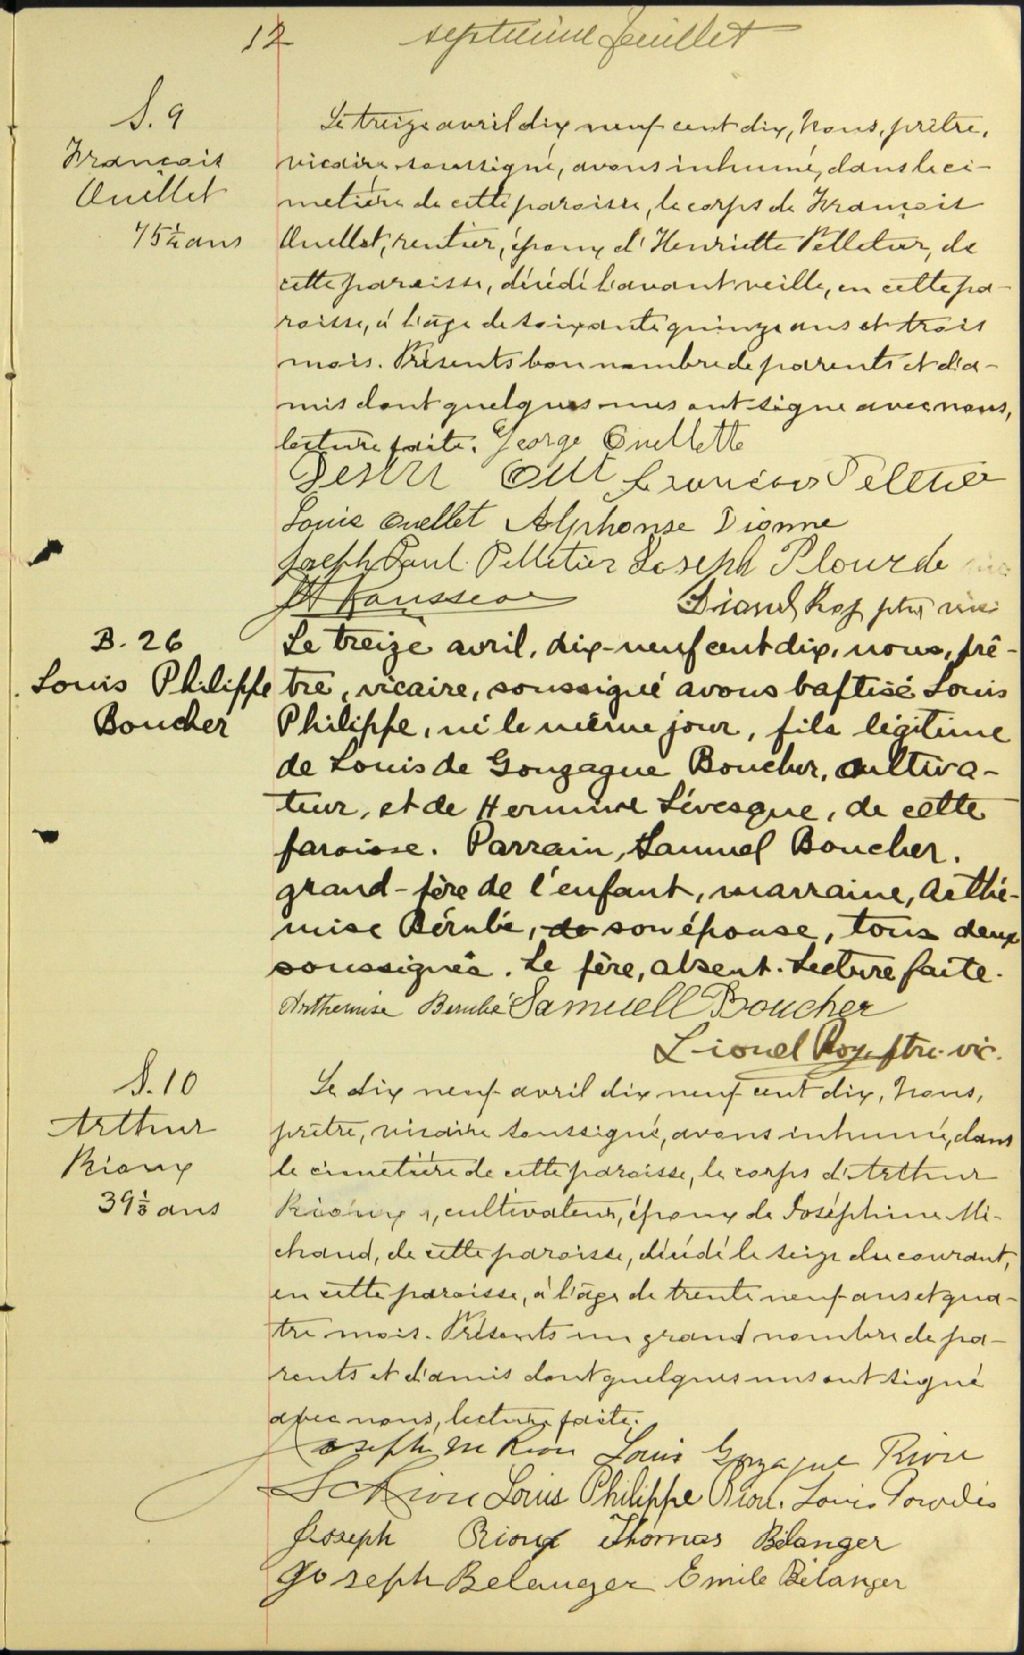 12 septième feuillet
S. 9
François
Ouellet
75 1/4 ans
Le treize avril dix neuf cent dix, Nous, prêtre,
vicaire soussigné, avons inhumé, dans le ci-
metière de cette paroisse, le corps de François
Ouellet, rentier, époux d'Henriette Pelletier, de
cette paroisse, décédé l'avant veille, en cette pa-
roisse, à l'âge de soixante quinze ans et trois
mois. Présents bon nombre de parents et d'a-
mis dont quelques unes ont signé avec nous,
lecture faite. George Ouellette
François Pelletier
Louis Ouellet Alphonse Dionne
Joseph Paul Pelletier Joseph Plourde
Rousseau Lionel Roy ptre vic
B. 26
Louis Philippe
Boucher
Le treize avril, dix-neuf cent dix, nous, prê-
tre, vicaire, soussigné avons baptisé Louis
Philippe, né le même jour, fils légitime
de Louis de Gonzague Boucher, cultiva-
teur, et de Hermine Lévesque, de cette
paroisse. Parrain, Samuel Boucher,
grand-père de l'enfant, marraine, Arthé-
mise Bérubé, de son épouse, tous deux
soussignés. Le père, absent. Lecture faite.
Arthemise Berubé Samuell Boucher
Lionel Roy ptre. vic.
S. 10
Arthur
Rioux
39 1/3 ans
Le dix neuf avril dix neuf cent dix, Nous,
prêtre, vicaire soussigné, avons inhumé, dans
le cimetière de cette paroisse, le corps d'Arthur
Rioux, cultivateur, époux de Joséphine Mi-
chaud, de cette paroisse, décédé le seize du courant,
en cette paroisse, à l'âge de trente neuf ans et qua-
tre mois. Présents un grand nombre de pa-
rents et d'amis dont quelques uns ont signé
avec nous, lecture faite.
Joseph Riou Louis Gonzague Riou
Riou Louis Philippe Riou. Louis
Joseph Rioux Thomas Bélanger
Joseph Belanger Emile Bélanger